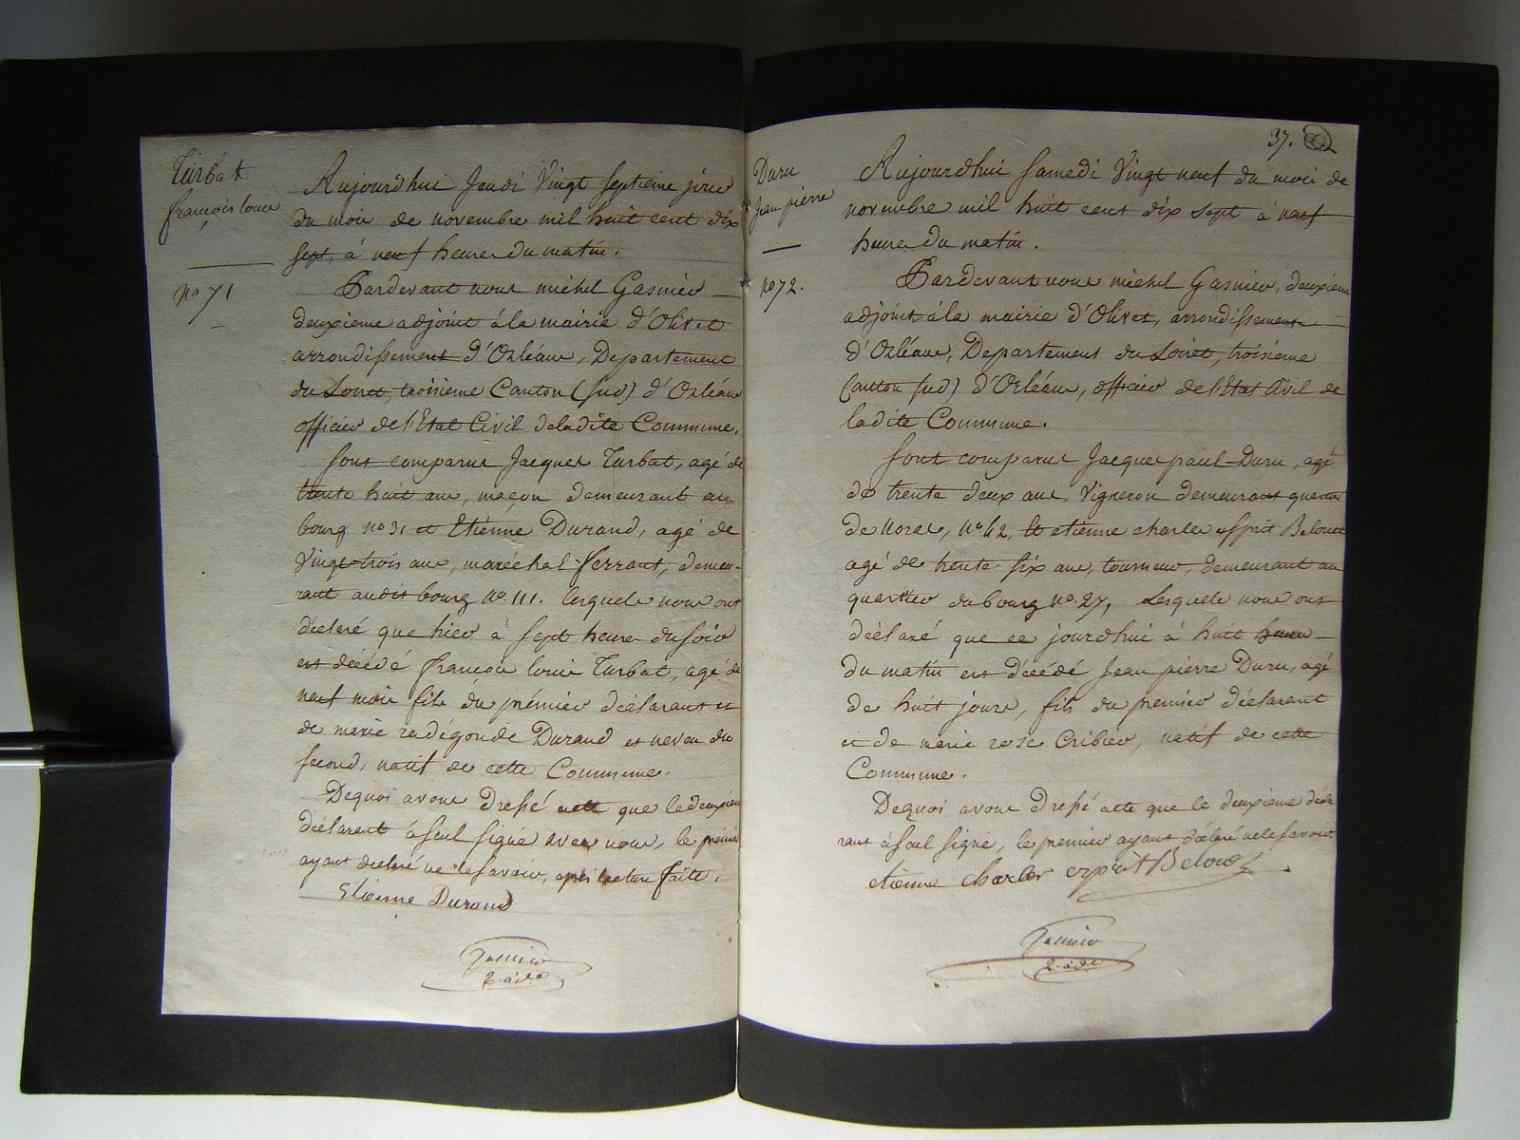 Turbat
françois louis
no 71
Aujourdhui Jeudi Vingt septieme jour
du mois de novembre mil huit cent dix
sept, à neuf heures du matin.
Pardevant nous michel Gasnier
deuxieme adjoint à la mairie d'Olivet
arrondissement d'Orléans, Departement
du Loiret, troisieme Canton (sud) d'Orléans
officier de l'Etat Civil de ladite Commune.
sont comparus Jacques Turbat, agé de
trente huit ans, maçon demeurant au
bourg no 31 et Etiénne Durand, agé de
Vingt-trois ans, maréchal ferrant, demeu-
rant audit bourg no. 111. lesquels nous ont
déclaré que hier à sept heures du soir
est décédé françois louis Turbat, agé de
neuf mois fils du prémier déclarant et
de marie radégonde Durand et neveu du
second, natif de cette Commune.
Dequoi avons dressé acte que le deuxieme
déclarant à seul signé avec nous, le prémier
ayant déclaré ne le savoir, après lecture faite.
Etienne Durand
Gasnier
2. adt.
37.
Duru
Jean pierre
no 72.
Aujourdhui samedi Vingt neuf du mois de
novembre mil huit cent dix sept à neuf
heures du matin.
Pardevant nous michel Gasnier, deuxieme
adjoint à la mairie d'Olivet, arrondissement
d'Orléans, Departement du Loiret, troisieme
Canton (sud) d'Orléans, officier de l'Etat Civil de
ladite Commune.
sont comparus Jacques paul Duru, agé
de trente deux ans, Vigneron demeurant quartier
de Noras, No 42, et etienne charles esprit Belouet
agé de trente six ans, tourneur, demeurant au
quartier du bourg no. 27, Lesquels nous ont
déclaré que ce jourdhui à huit heures
du matin est décédé Jean pierre Duru, agé
de huit jours, fils du premier déclarant
et de marie rose Cribier, natif de cette
Commune.
Dequoi avons dressé acte que le deuxieme décla
rant à seul signé, le premier ayant déclaré ne le savoir
etienne charles esprit Belouet
Gasnier
2. adt.